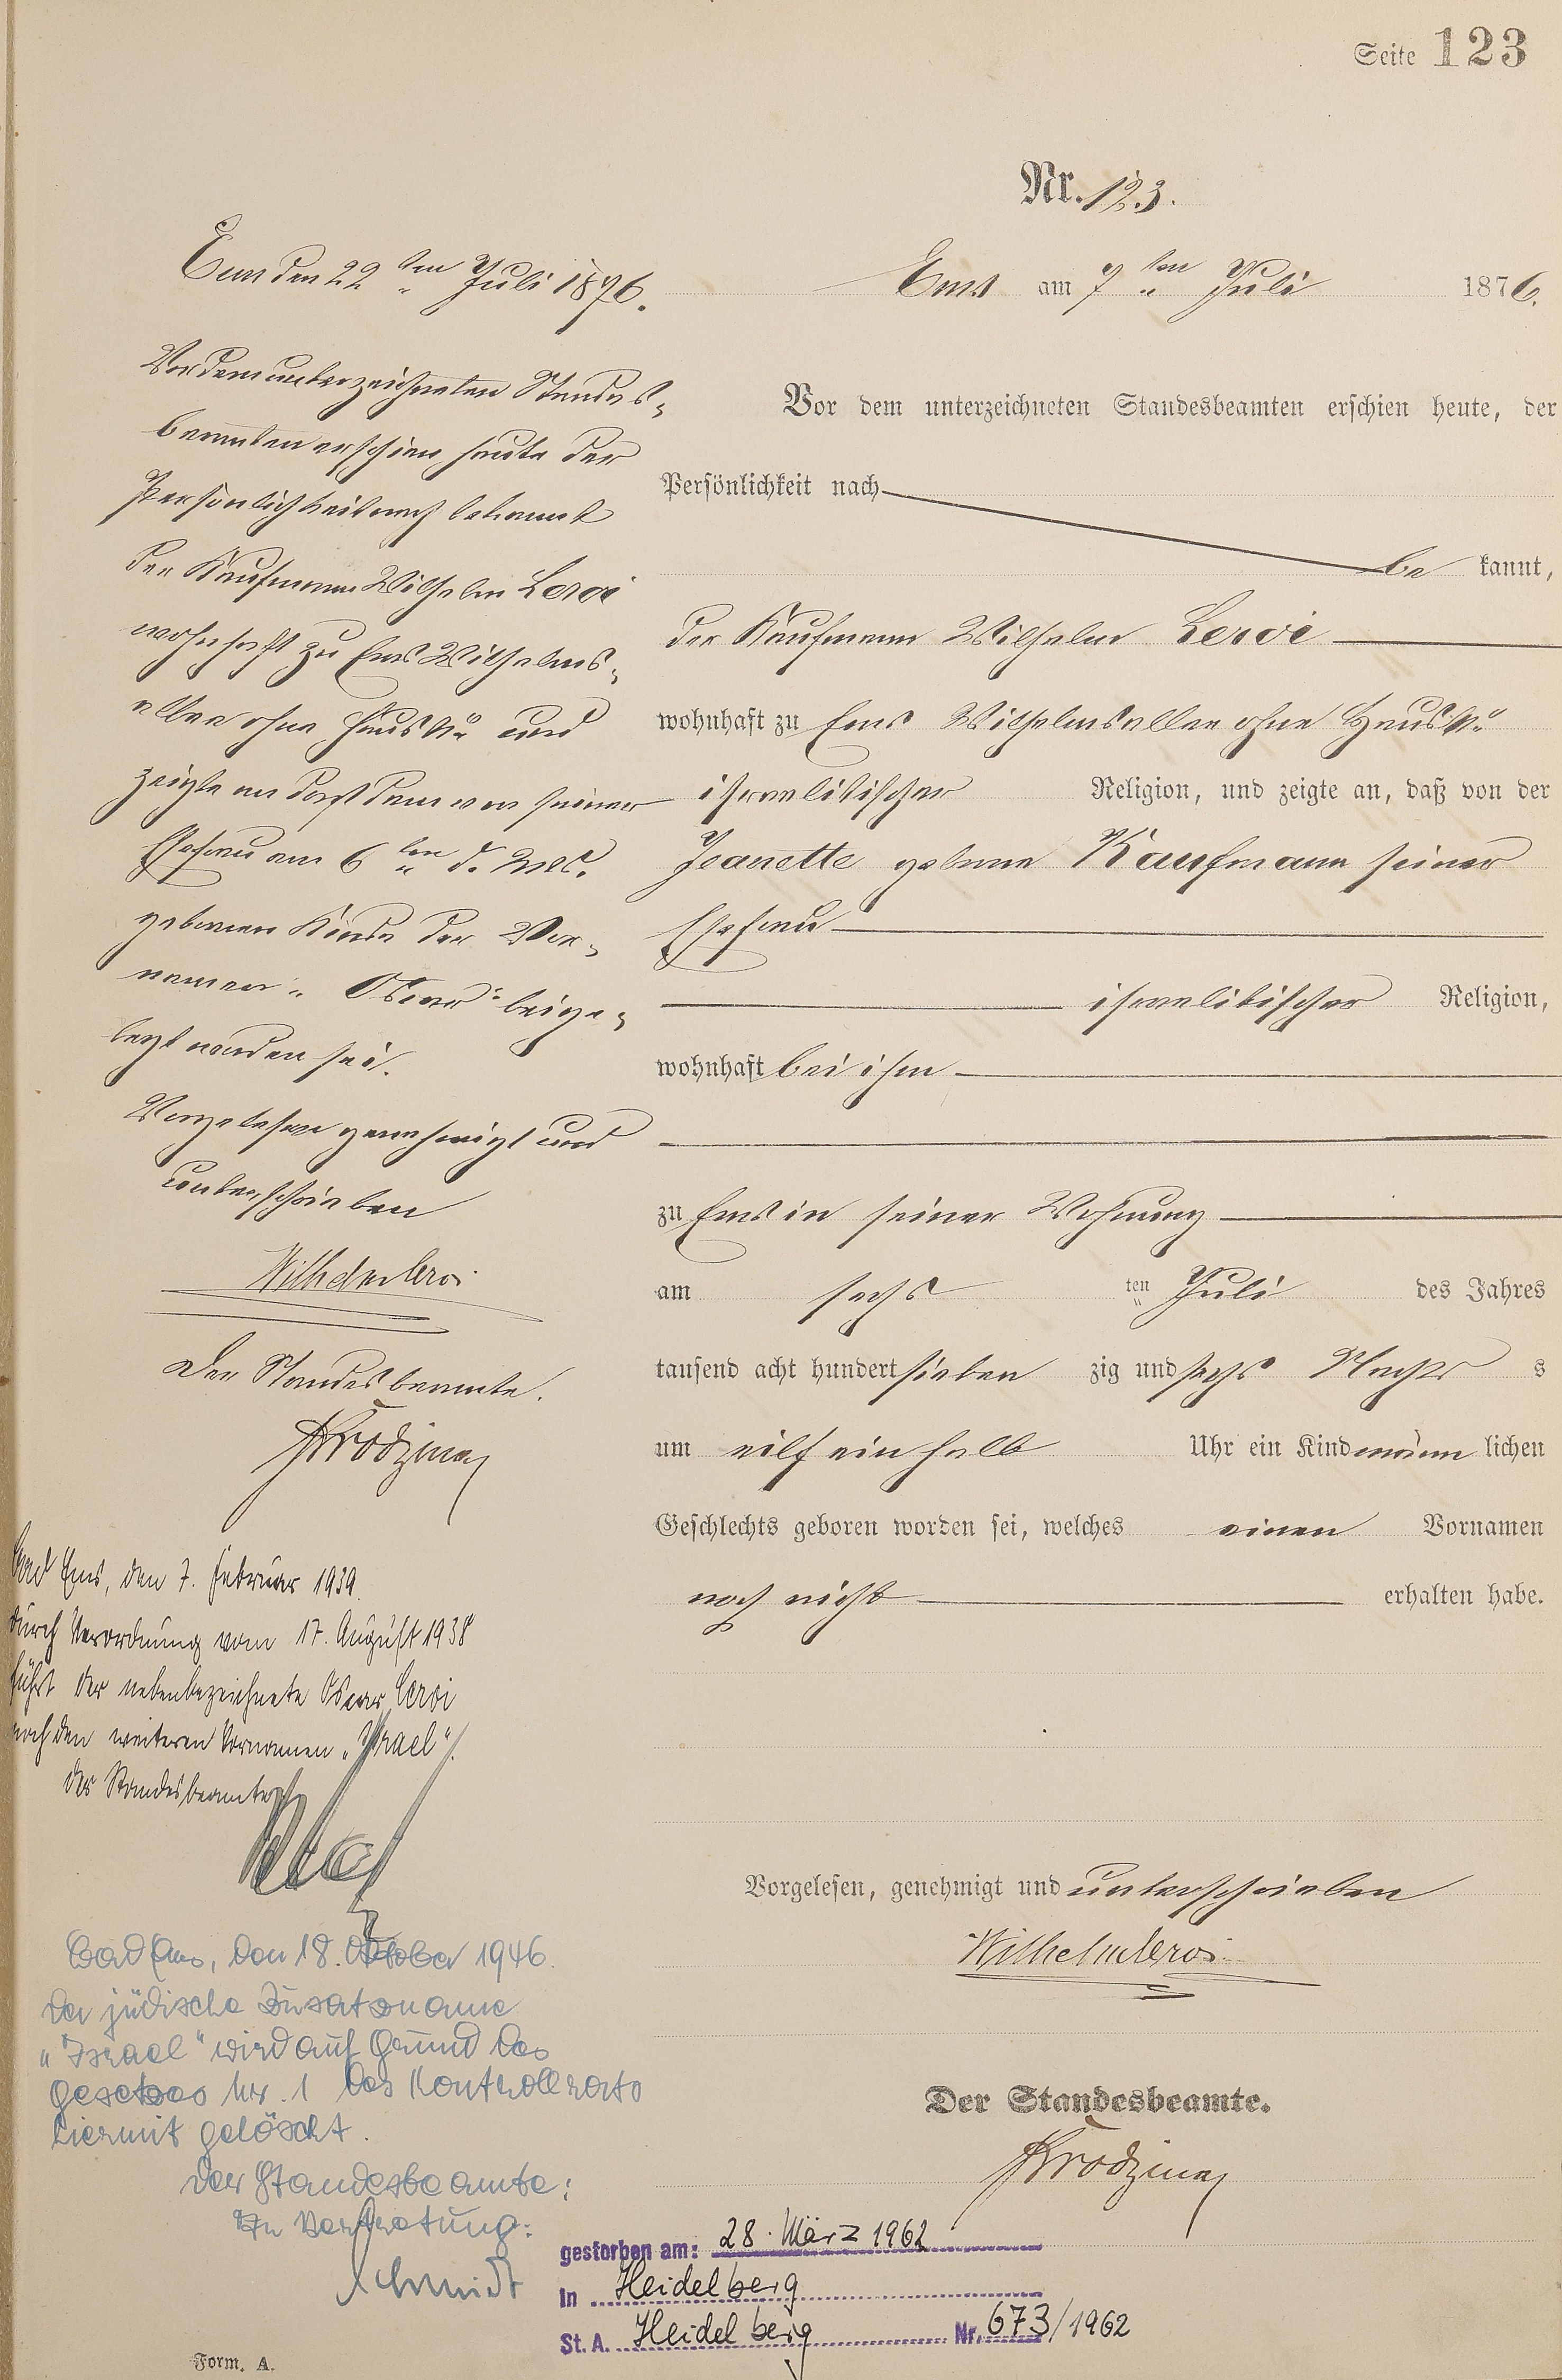 Seite 123
Nr. 123.
Ems am 7ten Juli 1876.
Vor dem unterzeichneten Standesbeamten erschien heute, der
Persönlichkeit nach
be kannt,
der Kaufmann Wilhelm Leroi
wohnhaft zu Ems Wilhelmsallee ohne Haus No
israelitischer Religion, und zeigte an, daß von der
Jeanette geborne Kaufmann seiner
Ehefrau
israelitischer Religion,
wohnhaft bei ihm
zu Ems in seiner Wohnung
am sechs ten Juli des Jahres
tausend acht hundert sieben zig und sechs Nachts s
um eilf ein halb Uhr ein Kind männ lichen
Geschlechts geboren worden sei, welches einen Vornamen
noch nicht erhalten habe.
Vorgelesen, genehmigt und unterschrieben
Wilhelm Leroi
Der Standesbeamte.
Ems den 22ten Juli 1876.
Vor dem unterzeichneten Standes-
beamten erschien heute der
Persönlichkeit nach bekannt
der Kaufmann Wilhelm Leroi
wohnhaft zu Ems Wilhelms-
allee ohne Haus No und
zeigte an daß dem von seiner
Ehefrau am 6ten d. Mts.
gebornen Kinde der Vor-
namen "Oscar" beige-
legt worden sei.
Vorgelesen genehmigt und
unterschrieben
Wilhelm Leroi
Der Standesbeamte.
Bad Ems, den 7. Februar 1939.
Durch Verordnung vom 17. August 1938
führt der nebenbezeichnete Oscar Leroi
noch den weiteren Vornamen „Israel“.
Der Standesbeamte
Bad Ems, den 18. Oktober 1946.
Der jüdische Zusatzname
„Israel“ wird auf Grund des
Gesetzes Nr. 1 des Kontrollrats
hiermit gelöscht.
Der Standesbeamte:
In Vertretung:
Schmidt
gestorben am: 28. März 1962
in Heidelberg
St. A. Heidelberg Nr. 673/1962
Form. A.